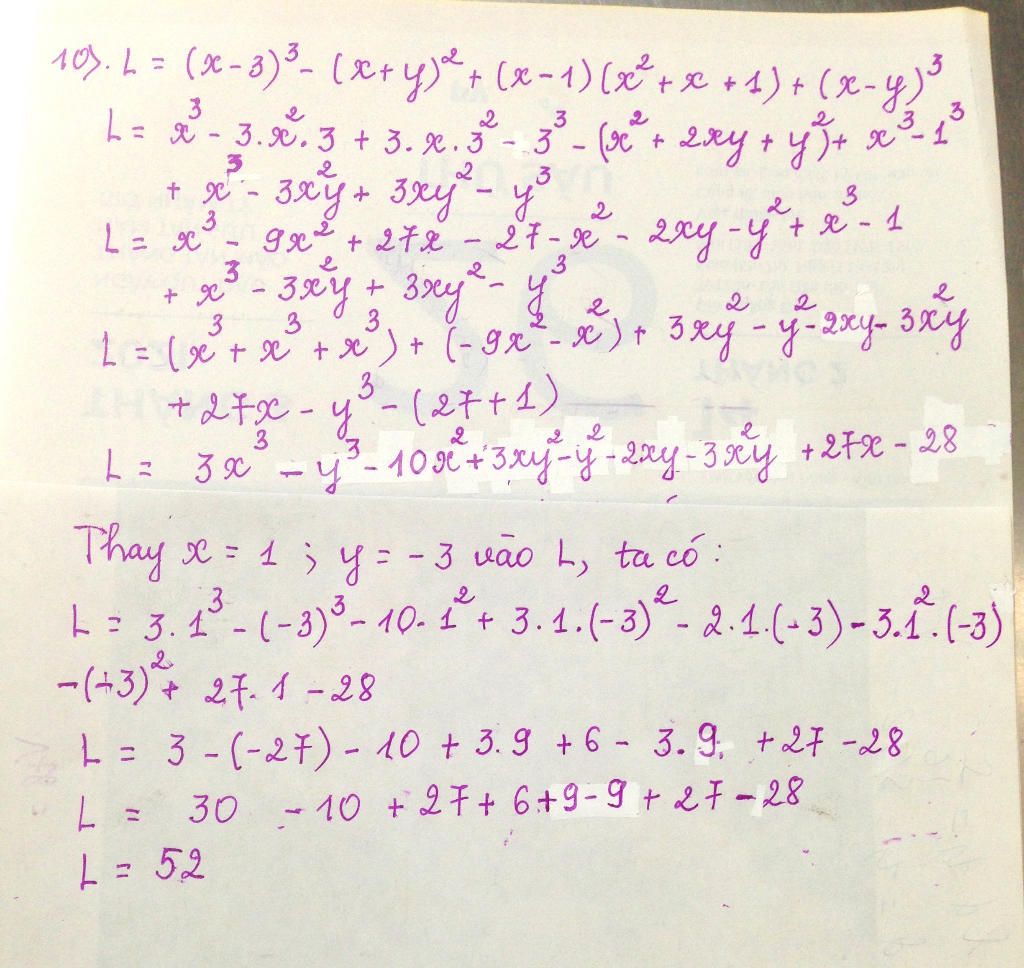 10). L = (x-3)³ - (x+y)² + (x-1)(x²+x+1) + (x-y)³
L = x³ - 3.x².3 + 3.x.3² - 3³ - (x² + 2xy + y²) + x³ - 1³
+ x³ - 3x²y + 3xy² - y³
L = x³ - 9x² + 27x - 27 - x² - 2xy - y² + x³ - 1
+ x³ - 3x²y + 3xy² - y³
L = (x³ + x³ + x³) + (-9x² - x²) + 3xy² - y² - 2xy - 3x²y
+ 27x - y³ - (27+1)
L = 3x³ - y³ - 10x² + 3xy² - y² - 2xy - 3x²y + 27x - 28
Thay x = 1 ; y = -3 vào L, ta có:
L = 3.1³ - (-3)³ - 10.1² + 3.1.(-3)² - 2.1.(-3) - 3.1².(-3)
-(-3)² + 27.1 - 28
L = 3 - (-27) - 10 + 3.9 + 6 - 3.9. + 27 - 28
L = 30 - 10 + 27 + 6 + 9 - 9 + 27 - 28
L = 52